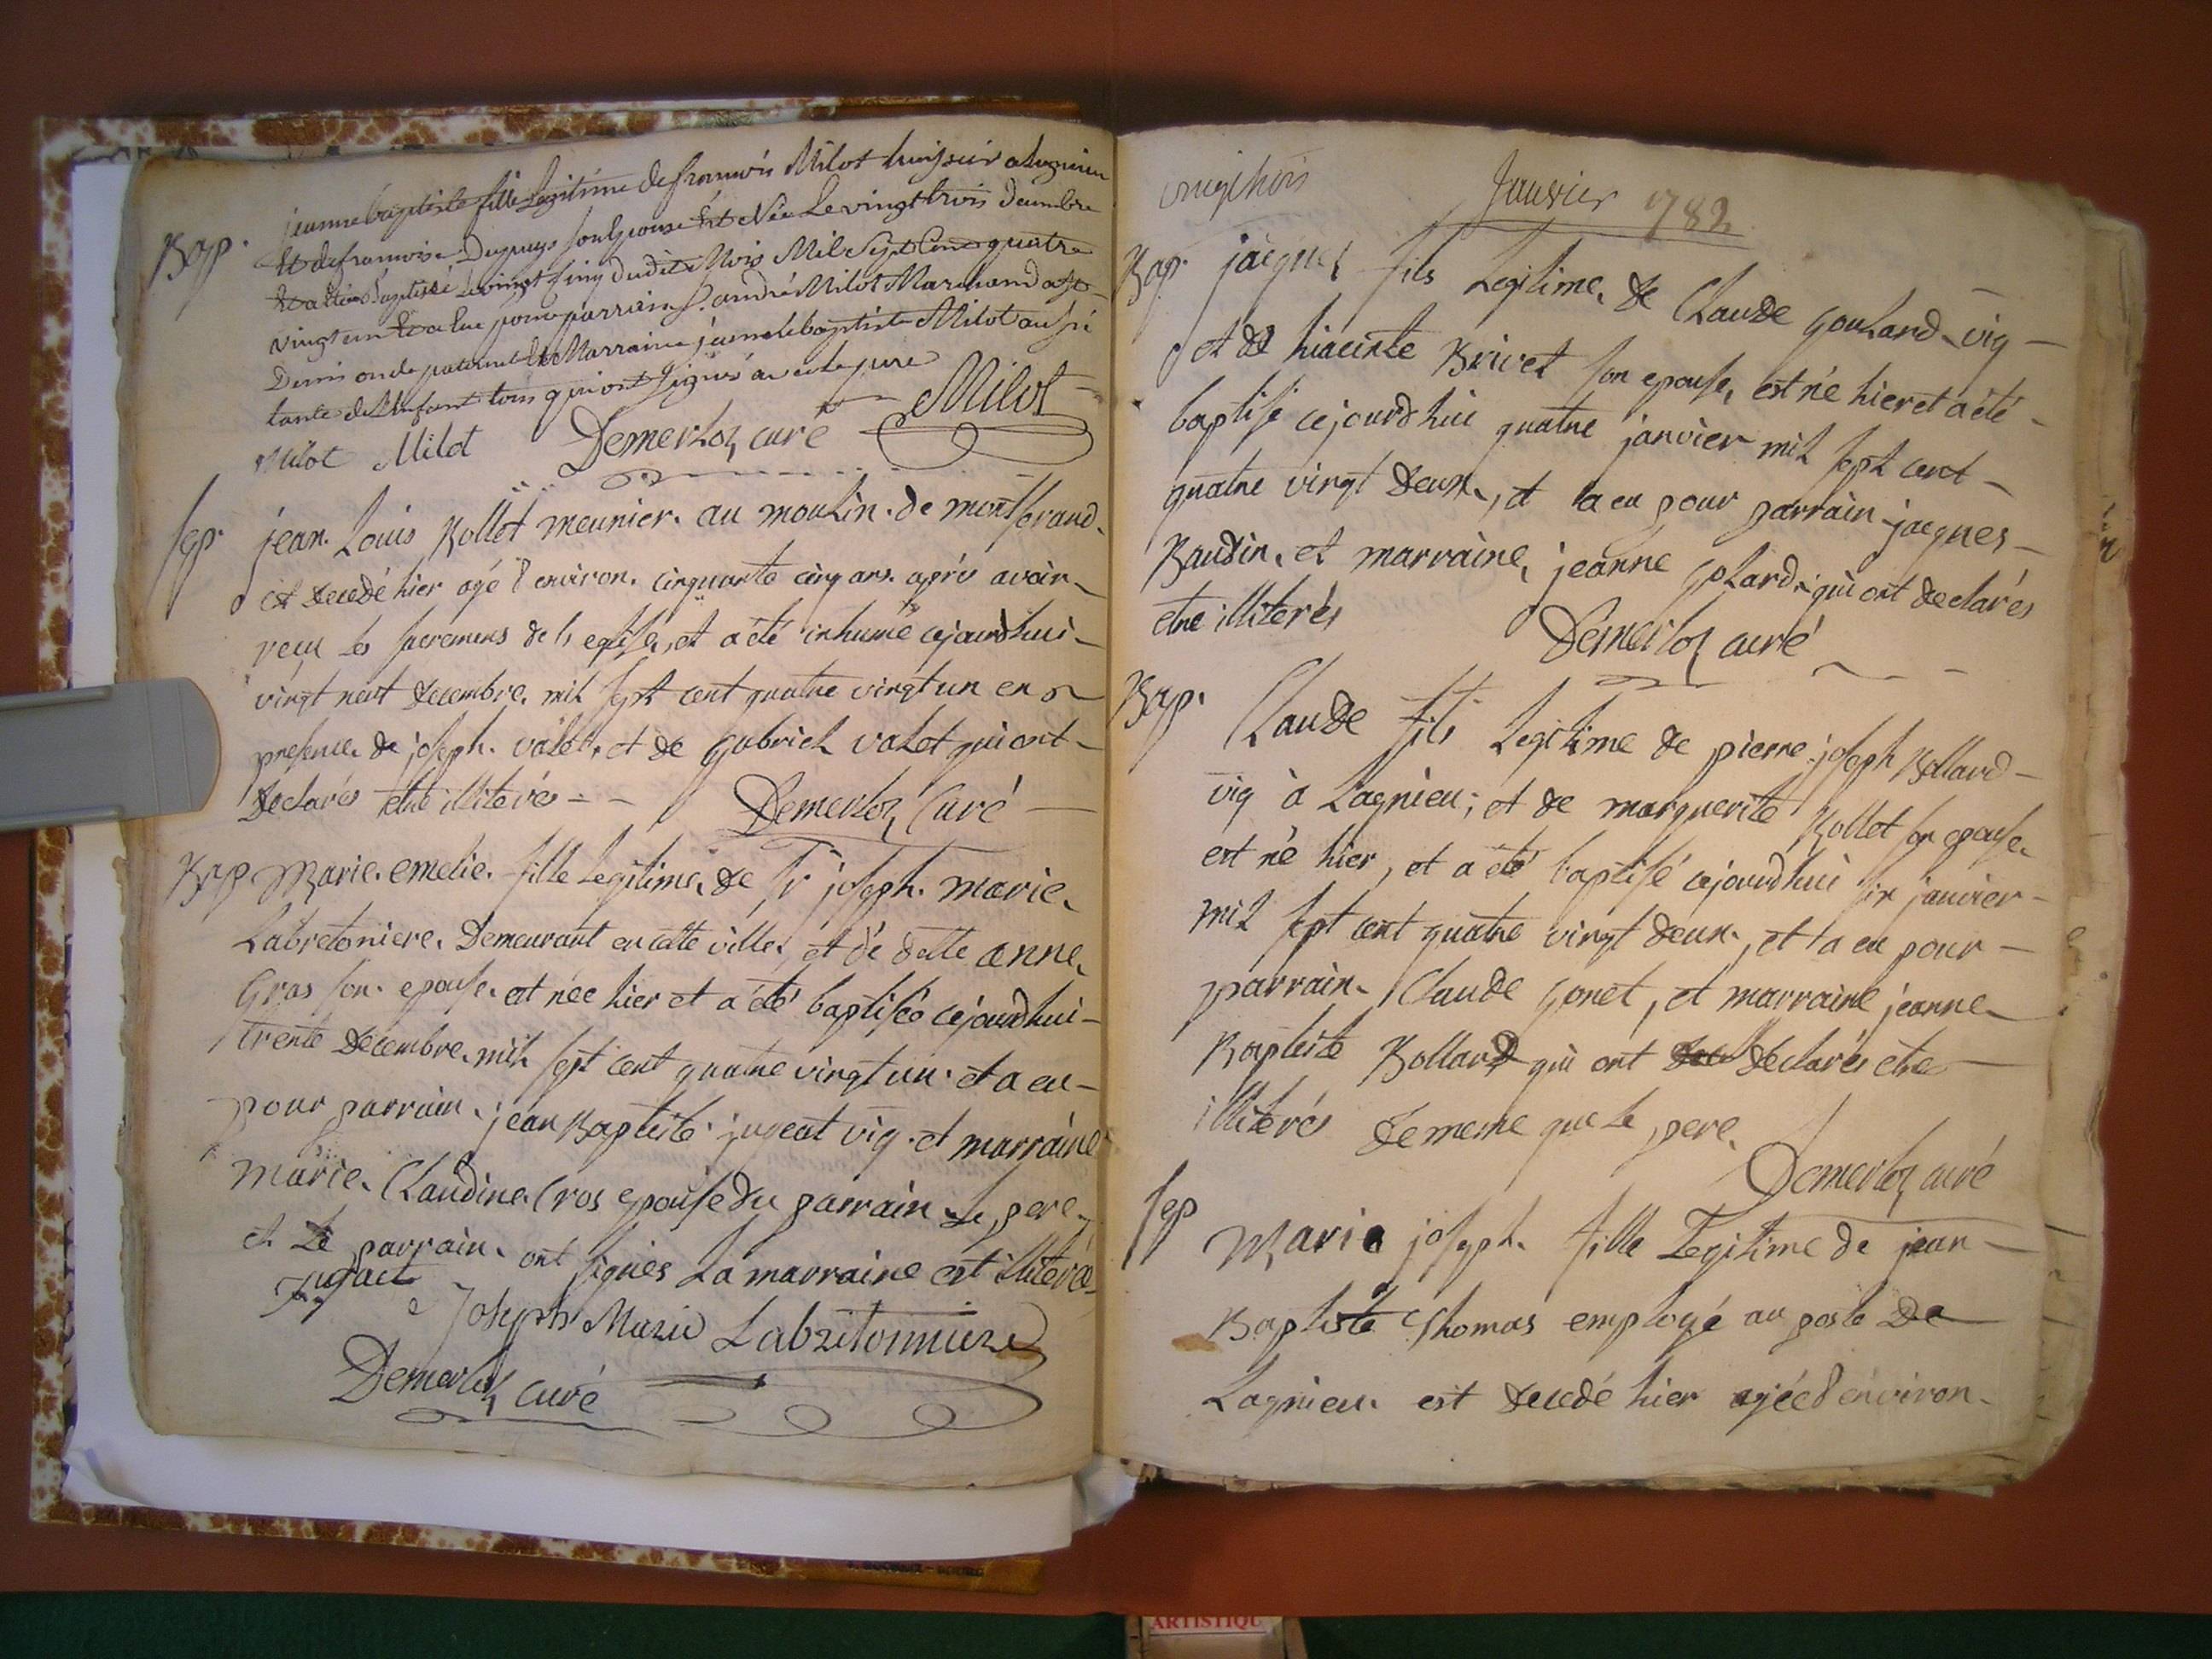 Bap. jeanne baptiste fille Legitime de francois Milot huissier a Lagnieu
Et de francoise Dupuys son Epouse Est Née Le vingt trois Decembre
Et a Etée Baptisée Le vingt cinq dudit Mois Mil Sept Cent quatre
vingt un Et a Eue pour parrain S. andré Milot Marchand a St
Denis oncle paternel Et Marraine jeanne baptiste Milot aussi
tante de L'enfant tous qui ont signés avec le pere
Milot Milot Demerloz curé Milot
sep. jean Louis Rollet meunier au moulin de montferrand
est decedé hier agé d'environ cinquante cinq ans après avoir
reçu les sacremens de l'eglise, et a été inhumé cejourdhui
vingt neuf decembre mil sept cent quatre vingt un en
presence de joseph valet et de gabriel valet qui ont
declarés etre illiterés Demerloz Curé
Bap. Marie emelie fille Legitime de Sr joseph marie
Labretoniere Demeurant en cette ville, et de delle anne
Gras son epouse est née hier et a été baptisée cejourdhui
trente decembre mil sept cent quatre vingt un et a eu
pour parrain jean Baptiste jugeat vig. et marraine
marie Claudine Cros epouse du parrain Le pere
et Le parrain ont signés La marraine est illiterée
Jugeat Joseph Marie Labretonniere
Demerloz curé
Janvier 1782
Bap. jacques fils Legitime de Claude Goulard vig
et de hiacinte Brivet son epouse, est né hier et a été
baptisé cejourdhui quatre janvier mil sept cent
quatre vingt deux, et a eu pour parrain jacques
Baudin, et marraine, jeanne Golard qui ont declarés
etre illiterés Demerloz curé
Bap. Claude fils Legitime de pierre joseph Bollard
vig à Lagnieu, et de marguerite Rollet son epouse
est né hier, et a été baptisé cejourdhui six janvier
mil sept cent quatre vingt deux, et a eu pour
parrain Claude Gonet, et marraine jeanne
Baptiste Bollard qui ont declarés etre
illiterés de meme que le pere
Demerloz curé
sep Marie joseph fille Legitime de jean
Baptiste Thomas employé au poste De
Lagnieu est decedé hier agée d'environ